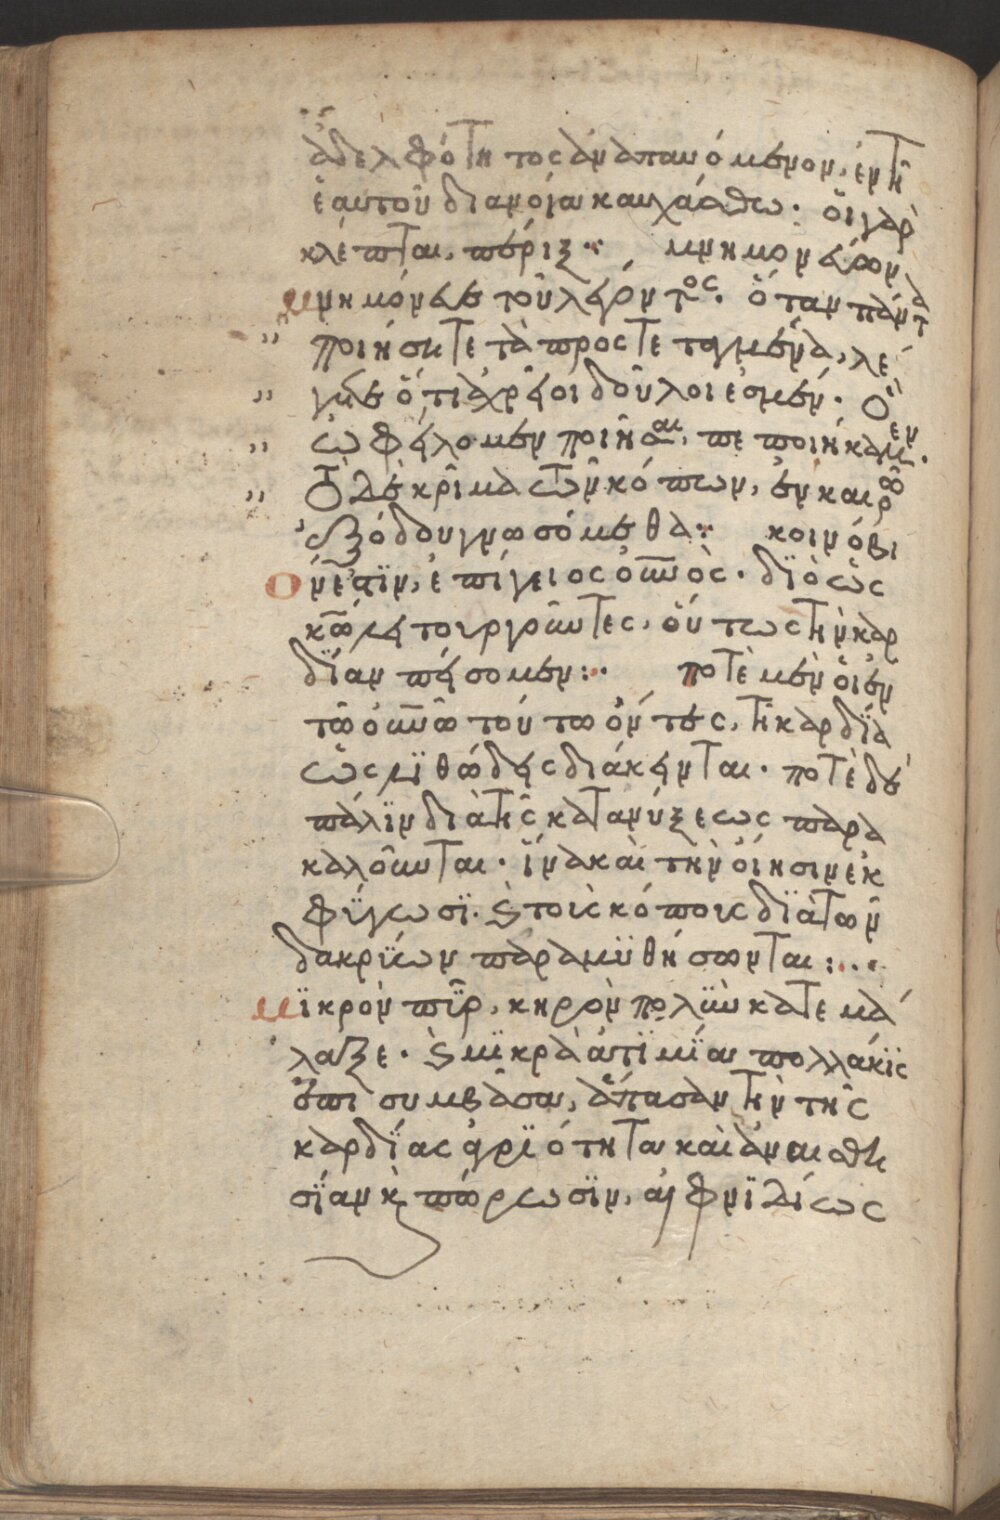 ἀδελφότητος ἀναπαυόμενον, ἐν τῇ
ἑαυτοῦ διανοία καυχάσθω· οἱ γὰρ
κλέπται, πέριξ : μνημόνευσον
μνημόνευε τοῦ λέγοντος· ὅταν πάντα
" ποιήσητε τὰ προςτεταγμένα, λέ
" γετε ὅτι ἀχρεῖοι δοῦλοι ἐσμέν· ὃ
" ὠφείλομεν ποιῆσαι, πεποιήκαμεν·
" τὸ δὲ κρῖμα τῶν κόπων, ἐν καιρῶ
ἐξόδου γνωσόμεθα : κοινόβι
όν ἐστιν, ἐπίγειος οὐνὸς· διὸ ὡς
κω λειτουργοῦντες, οὕτως τὴν καρ
δίαν πείσομεν : ποτὲ μὲν οἱ ἐν
τῶ οὐνῶ τούτω ὄντες, τῇ καρδία
ὡς λιθώδεις διάκεινται· ποτὲ δὲ
πάλιν διὰ τῆς κατανύξεως παρα
καλοῦνται· ἵνα καὶ τὴν οἴησιν ἐκ
φύγωσι· καὶ τοῖς κόποις διὰ τῶν
δακρύων παραμυθήσωνται :
μικρὸν πῦρ, κηρὸν πολὺν κατεμά
λαξε· καὶ μικρὰ ἀτιμία πολλάκις
ἐπισυμβᾶσα, ἅπασαν τὴν τῆς
καρδίας ἀγριότητα καὶ ἀναισθη
σίαν καὶ πώρωσιν, αἰφνιδίως